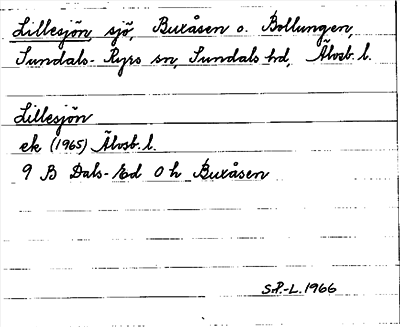 Lillesjön, sjö, Buråsen o. Bollungen,
Sundals-Ryrs sn, Sundals hd, Älvsb. l.
Lillesjön
ek (1965) Älvsb. l.
9 B Dals-Ed 0 h Buråsen
S.P.-L. 1966